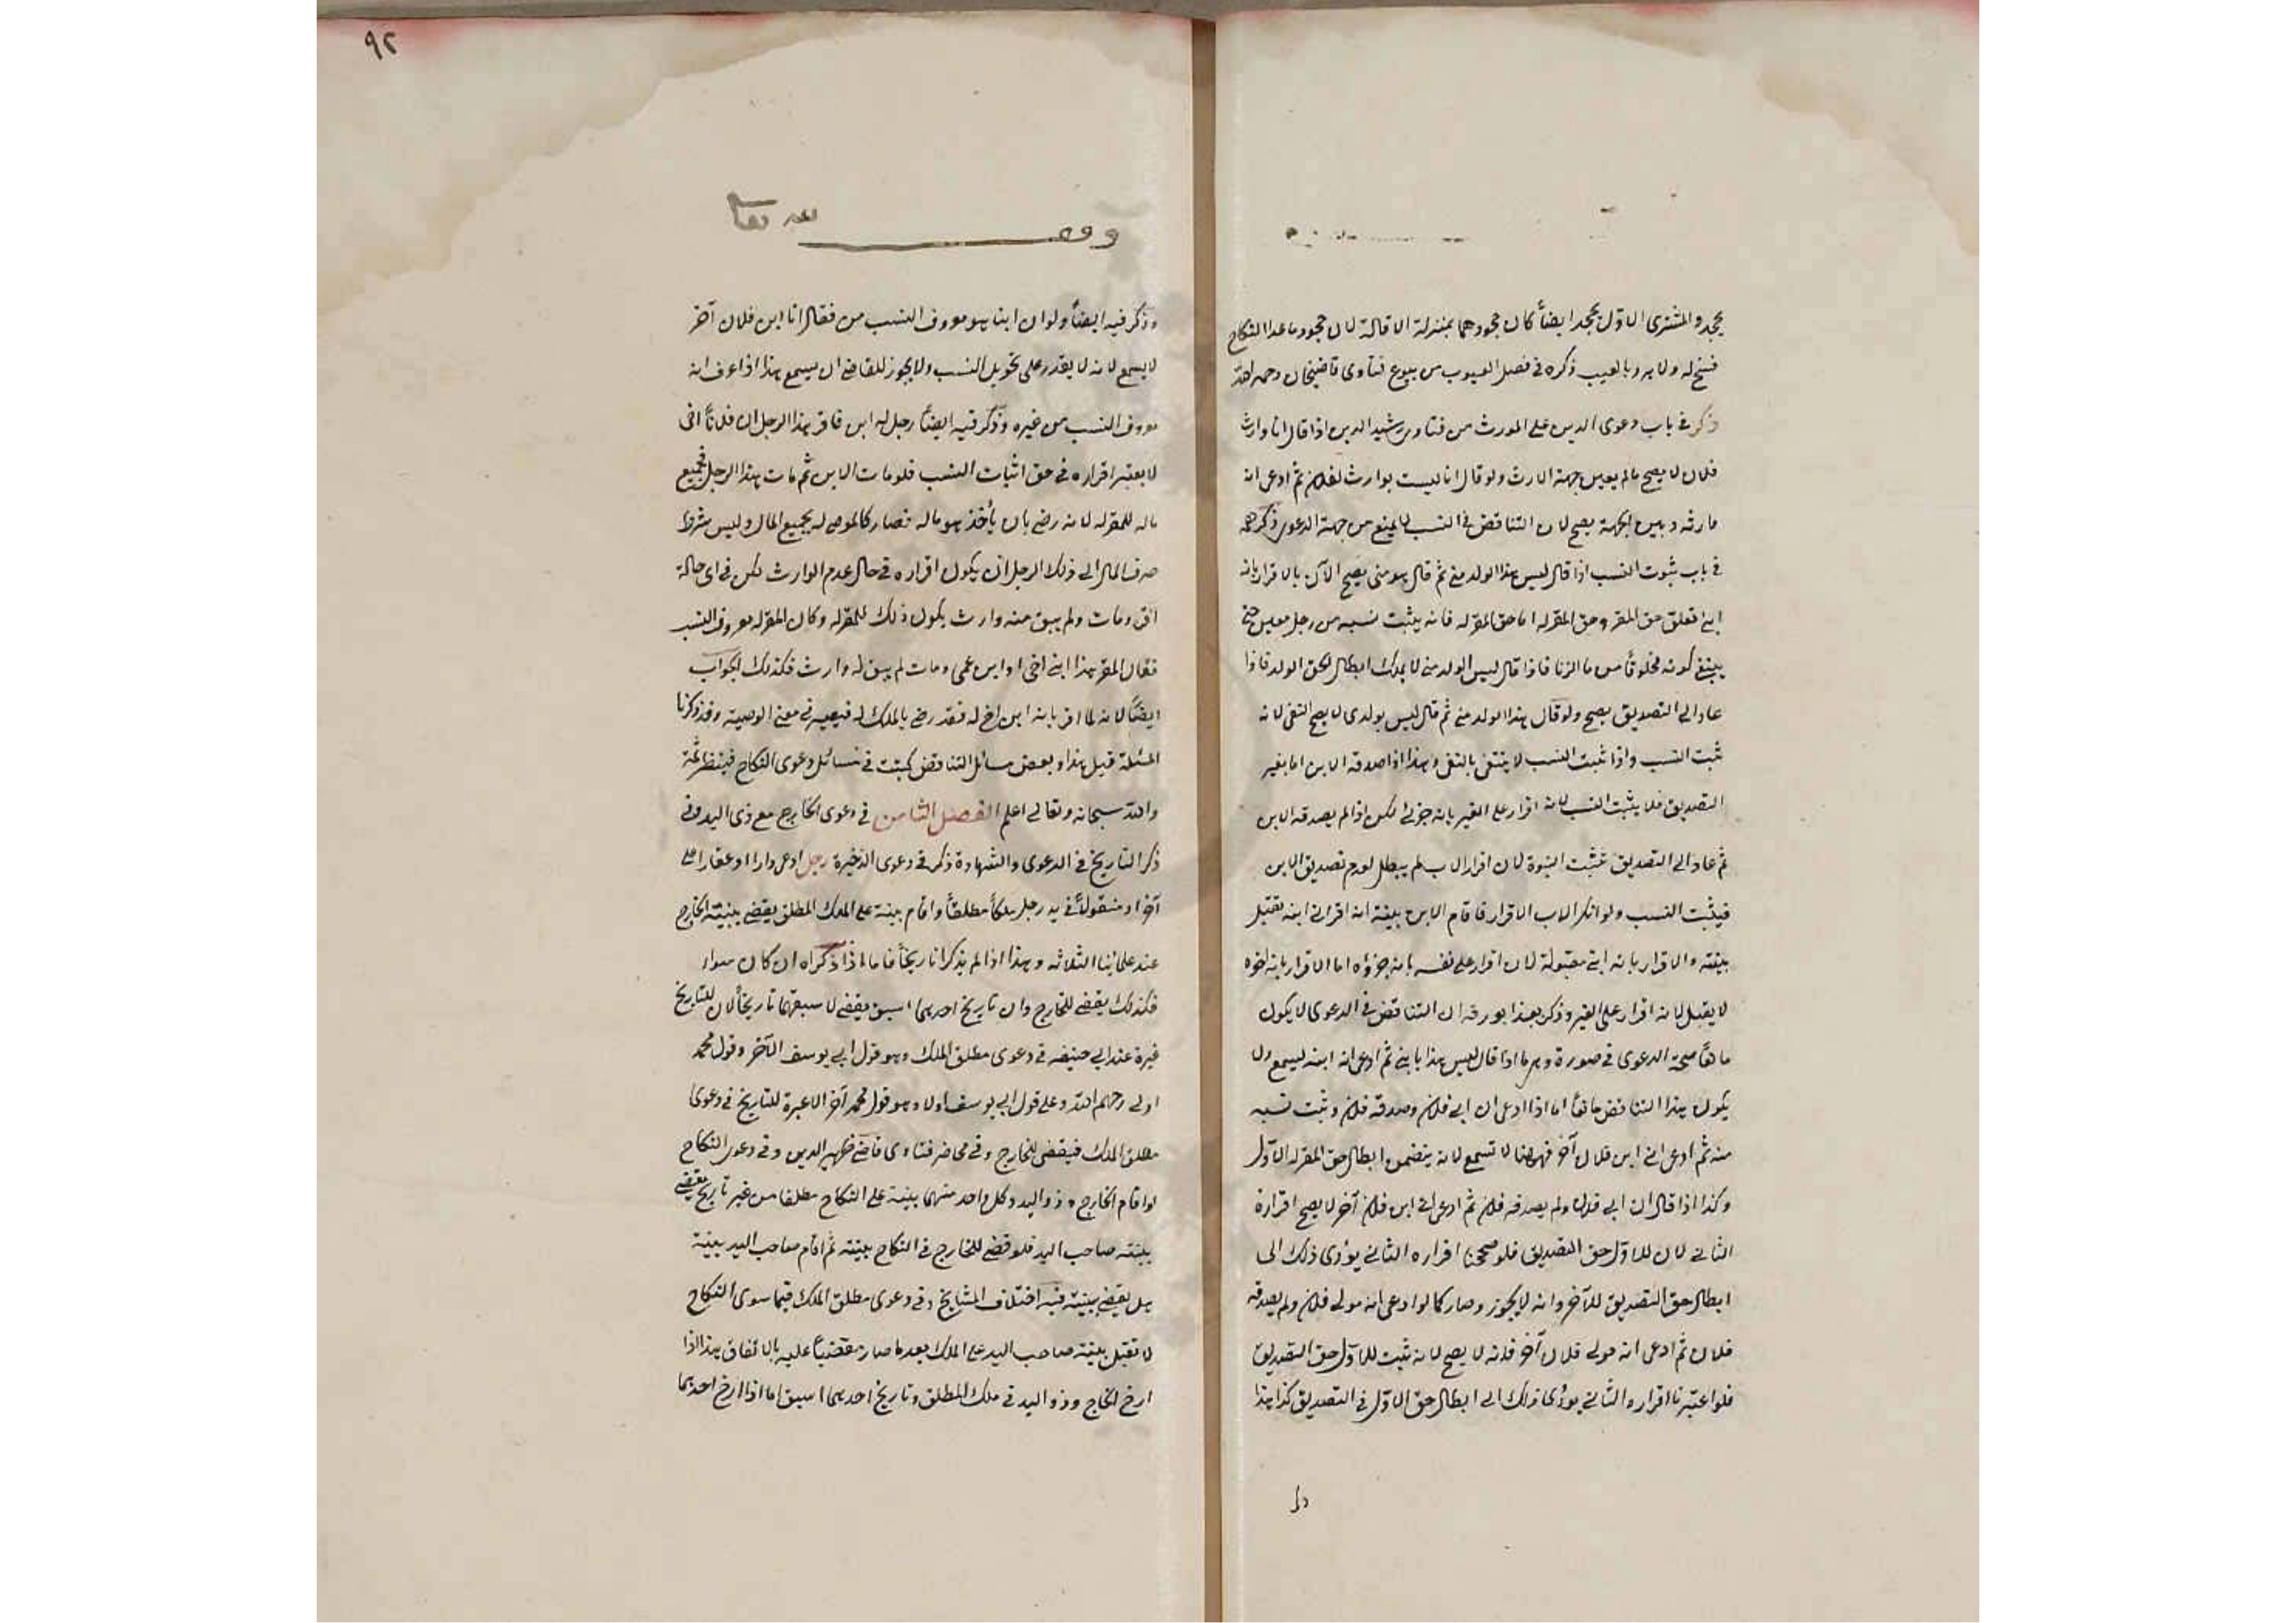 يجحد والمشترى الاول يجحد ايضاً كان جحودهما بمنزلة الاقالة لان جحود ما عدا النكاح
فسخ له ولا يرد بالعيب ذكره فى فصل العيوب من بيوع فتاوى قاضيخان رحمه الله
ذكر فى باب دعوى الدين على المورث من فتاوى رشيد الدين اذا قال انا وارث
فلان لا يصح مالم يعين جهة الارث ولو قال انا ليست بوارث لفلان ثم ادعى انه
وارثه وبين الجهة يصح لان التناقض فى النسب لا يمنع من جهة الدعوى ذكر
فى باب ثبوت النسب اذا قال ليس هذا الولد منى ثم قال هو منى يصح الآن بالاقرار بانه
ابنى تعلق حق المقر وحق المقر له اما حق المقر له فانه يثبت نسبه من رجل معين حتى
ينتفى كونه مخلوقاً من ما الزنا فاذا قال ليس الولد منى لا يملك ابطال حق الولد فاذا
عاد الى التصديق يصح ولو قال هذا الولد منى ثم قال ليس بولدى لا يصح النفى لانه
ثبت النسب واذا ثبت النسب لا ينتفى بالنفى وهذا اذا صدقه الابن اما بغير
التصديق فلا يثبت النسب لانه اقرار على الغير بانه جزئى لكن اذا لم يصدقه الابن
ثم عاد الى التصديق تثبت البنوة لان اقرار الاب لم يبطل لعدم تصديق الابن
فيثبت النسب ولو انكر الاب الاقرار فاقام الابن بينة انه اقر انى ابنه تقبل
بينته والاقرار بانه ابنى مقبولة لان اقرار على نفسه بانه جزؤه اما الاقرار بانه اخوه
لا يقبل لانه اقرار على الغير وذكر بعد هذا بورقة ان التناقض فى الدعوى لا يكون
مانعاً صحة الدعوى فى صورة وهو ما اذا قال ليس هذا بابنى ثم ادعى انه ابنه ليسمع ولا
يكون هذا التناقض مانعاً اما اذا ادعى ان ابى فلان وصدقه فلان وثبت نسبه
منه ثم ادعى انى ابن فلان آخر فههنا لا تسمع لانه يتضمن ابطال حق المقر له الاول
وكذا اذا قال ان ابى فلان ولم يصدقه فلان ثم ادعى انى ابن فلان آخر لا يصح اقراره
الثانى لان للاول حق التصديق فلو صححنا اقراره الثانى يؤدى ذلك الى
ابطال حق التصديق للآخر وانه لا يجوز وصار كما لو ادعى انه مولى فلان ولم يصدقه
فلان ثم ادعى انه مولى فلان آخر فانه لا يصح لانه ثبت للاول حق التصديق
فلو اعتبرنا اقراره الثانى يؤدى ذلك الى ابطال حق الاول فى التصديق كذا هذا
٩٢
وقف لله تعالى
وذكر فيه ايضاً ولو ان ابنا هو معروف النسب من فقال انا ابن فلان آخر
لا يسمع لانه لا يقدر على تحويل النسب ولا يجوز للقاضى ان يسمع هذا اذا عرف انه
معروف النسب من غيره وذكر فيه ايضاً رجل له ابن فاقر هذا الرجل ان فلاناً اخى
لا يعتبر اقراره فى حق اثبات النسب فلو مات الابن ثم مات هذا الرجل فجميع
ماله للمقر له لانه رضى بان يأخذ هو ماله فصار كالموصى له بجميع المال وليس شرط
صرف المال الى ذلك الرجل ان يكون اقراره فى حال عدم الوارث لكن فى اى حالة
اقر ومات ولم يبق منه وارث يكون ذلك للمقر له وكان المقر له معروف النسب
فقال المقر هذا ابنى اخى او ابن عمى ومات لم يبق له وارث فكذلك الجواب
ايضاً لانه لما اقر بانه ابن اخ له فقد رضى بالملك له فيعتبر فى معنى الوصية وقد ذكرنا
المسئلة قبل هذا وبعض مسائل التناقض كتبت فى مسائل دعوى النكاح فينظر ثمة
والله سبحانه وتعالى اعلم الفصل الثامن فى دعوى الخارج مع ذى اليد وفى
ذكر التاريخ فى الدعوى والشهادة ذكر فى دعوى الذخيرة رجل ادعى دارا او عقارا على
آخر او منقولاً فى يد رجل ملكاً مطلقاً واقام بينة على الملك المطلق يقضى ببينة الخارج
عند علمائنا الثلاثه وهذا اذا لم يذكرا تاريخاً فاما اذا ذكراه ان كان سواء
فكذلك يقضى للخارج وان تاريخ احدهما اسبق يقضى لاسبقهما تاريخاً لان للتاريخ
عبرة عند ابى حنيفه فى دعوى مطلق الملك وهو قول ابى يوسف الآخر وقول محمد
اولى رحمهم الله وعلى قول ابى يوسف اولا وهو قول محمد آخر الا عبرة للتاريخ فى دعوى
مطلق الملك فيقضى للخارج وفى محاضر فتاوى قاضى ظهير الدين وفى دعوى النكاح
لو اقام الخارج وذو اليد وكل واحد منهما بينة على النكاح مطلقا من غير تاريخ يقضى
ببينة صاحب اليد فلو قضى للخارج فى النكاح ببينته ثم اقام صاحب اليد بينة
هل يقضى ببينته فيه اختلاف المشايخ وفى دعوى مطلق الملك فيما سوى النكاح
لا تقبل بينة صاحب اليد على الملك بعد ما صار مقضياً عليه بالاتفاق هذا اذا
ارخ الخارج وذو اليد فى ملك المطلق وتاريخ احدهما اسبق اما اذا ارخ احدهما